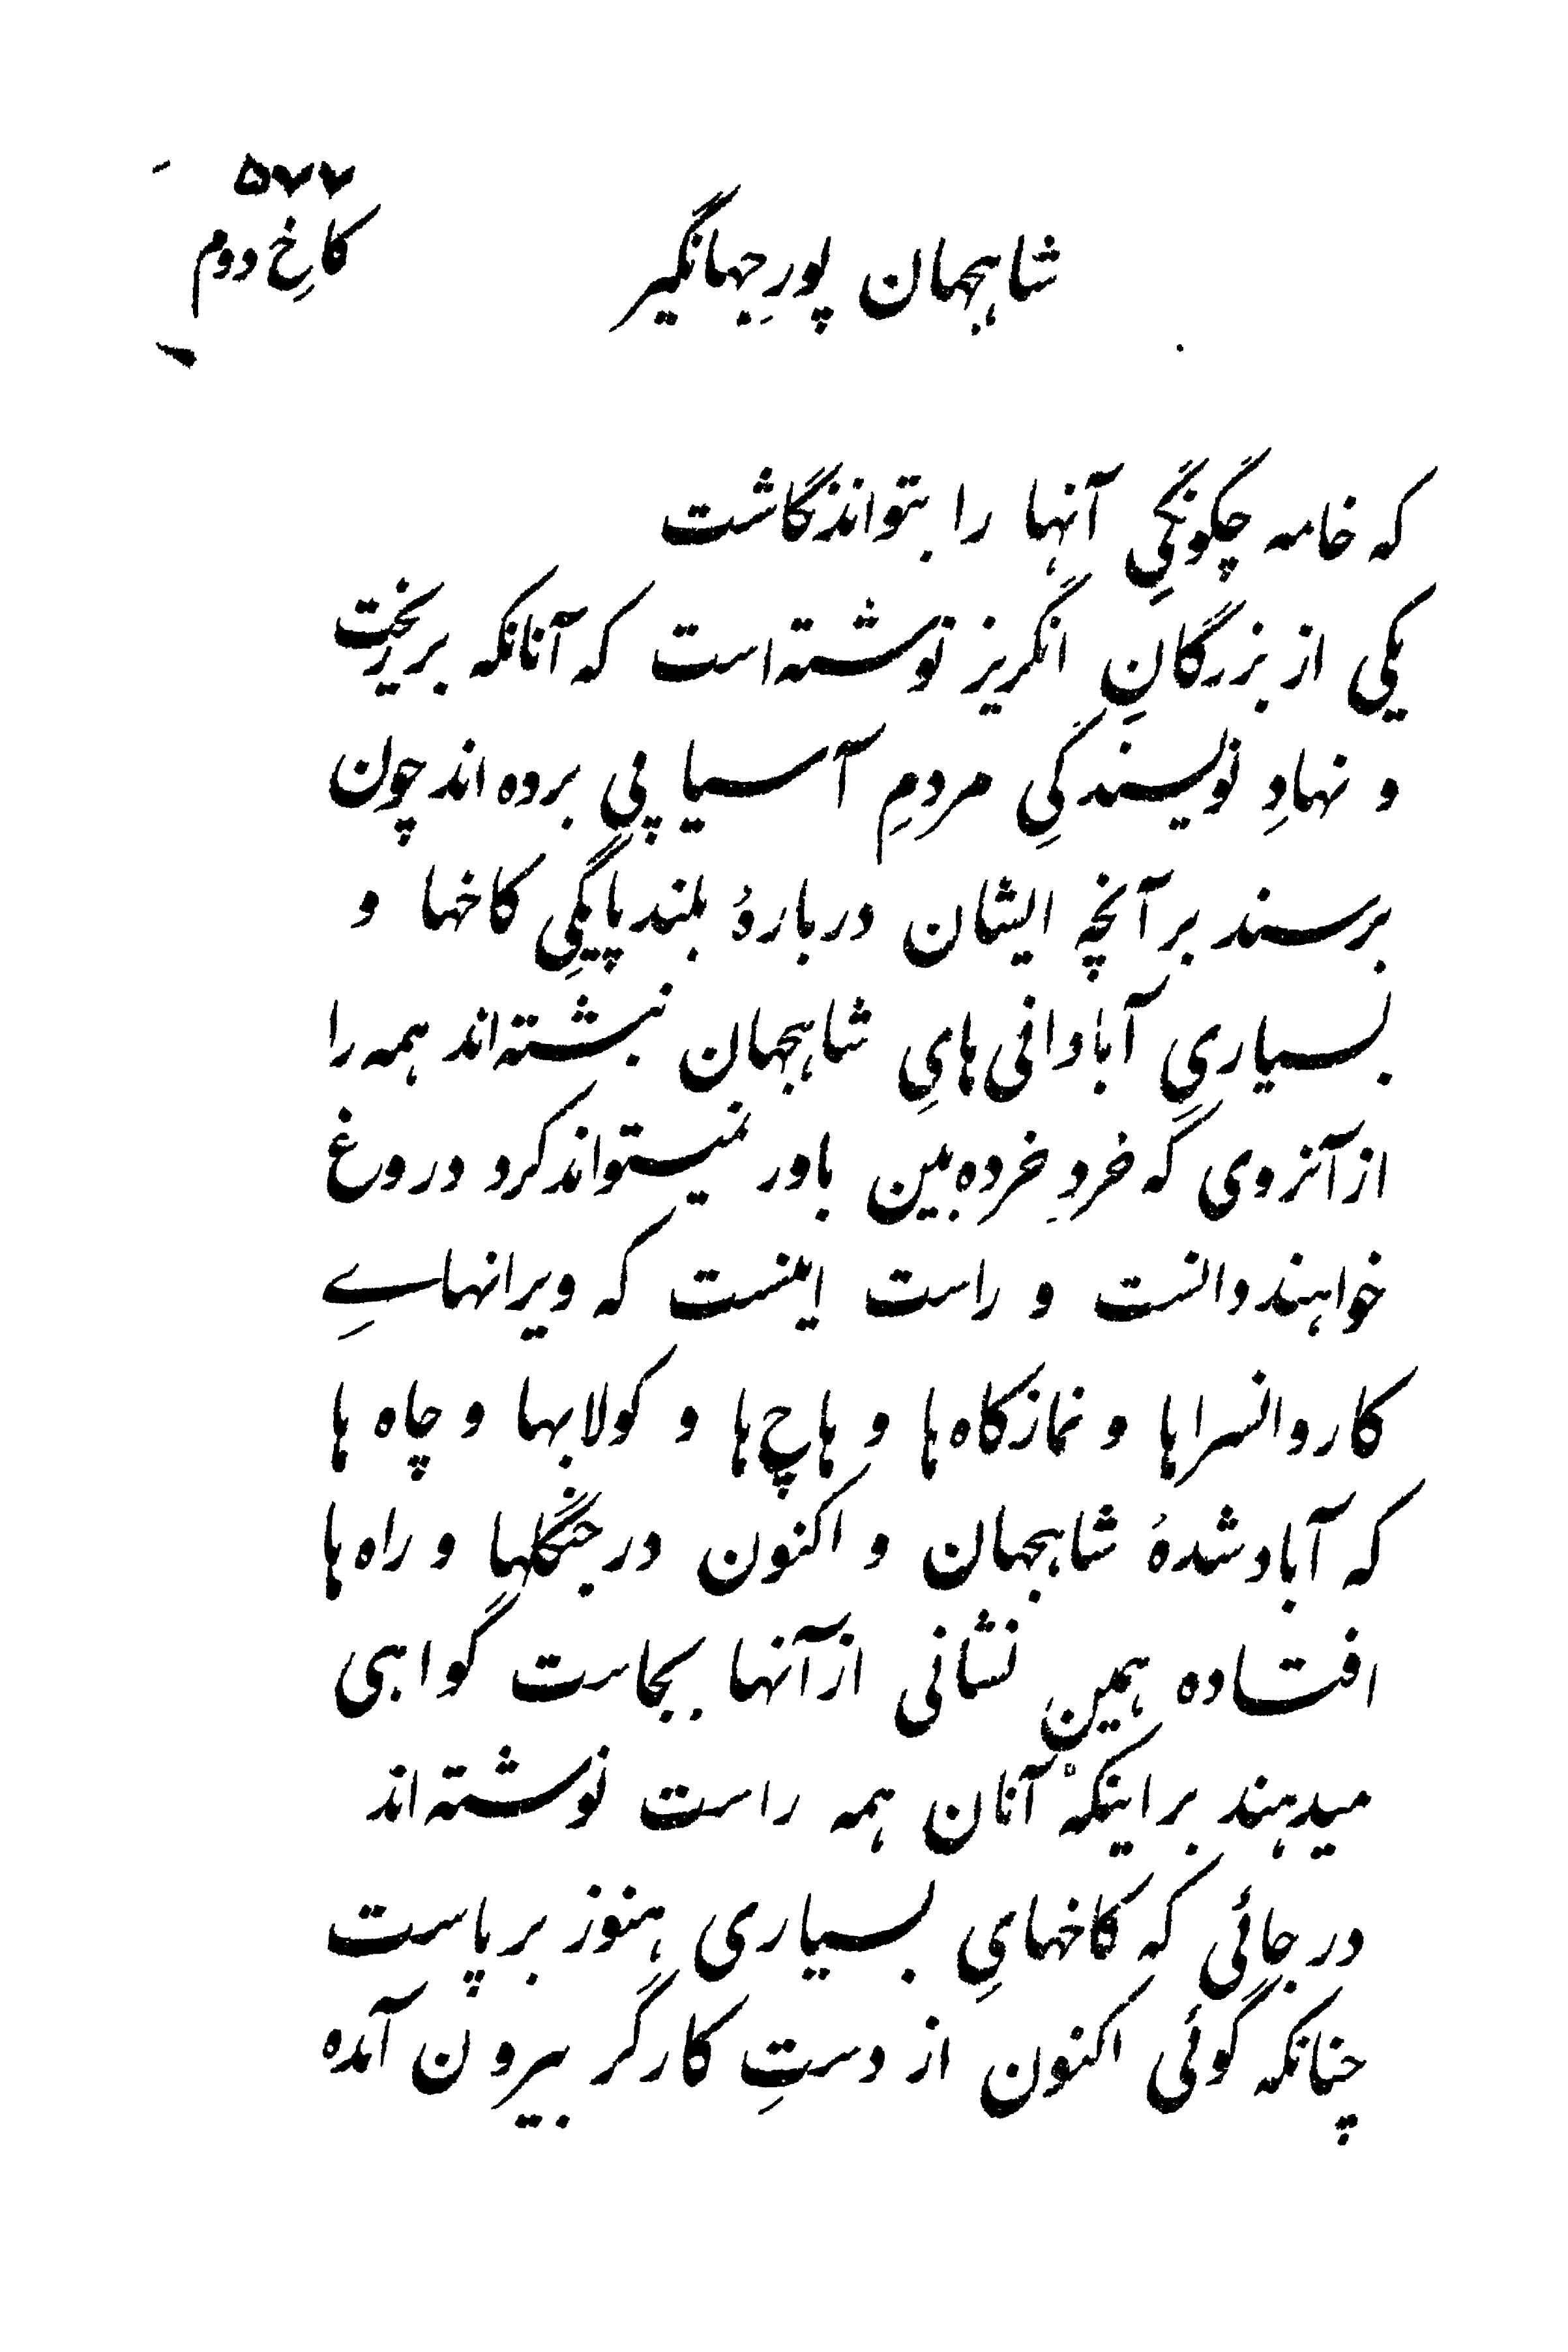 ۵۷۷
کاخِ دوم
شاهجهان پورِ جهانگیر
که خامه چگونگیِ آنها را بتواند نگاشت
یکی از بزرگانِ انگریز نوشته است که آنانکه بر ریخت
و نهادِ نویسندگیِ مردمِ آسیا پی برده اند چون
برسند بر آنچه ایشان دربارهٔ بلند پایگیِ کاخها و
بسیاریِ آبادانی هایِ شاهجهان نبشته اند همه را
از آنروی که خردِ خرده بین باور نمیتواند کرد دروغ
خواهند دانست و راست اینست که ویرانهاےِ
کاروانسراها و نمازگاه ها و هاچ ها و کولابها و چاه ها
که آباد شدهٔ شاهجهان و اکنون در جنگلها و راه ها
افتاده همین نشانی از آنها بجاست گواهی
میدهند بر اینکه آنان همه راست نوشته اند
در جائی که کاخهایِ بسیاری هنوز بر پاست
چنانکه گوئی اکنون از دستِ کارگر بیرون آمده